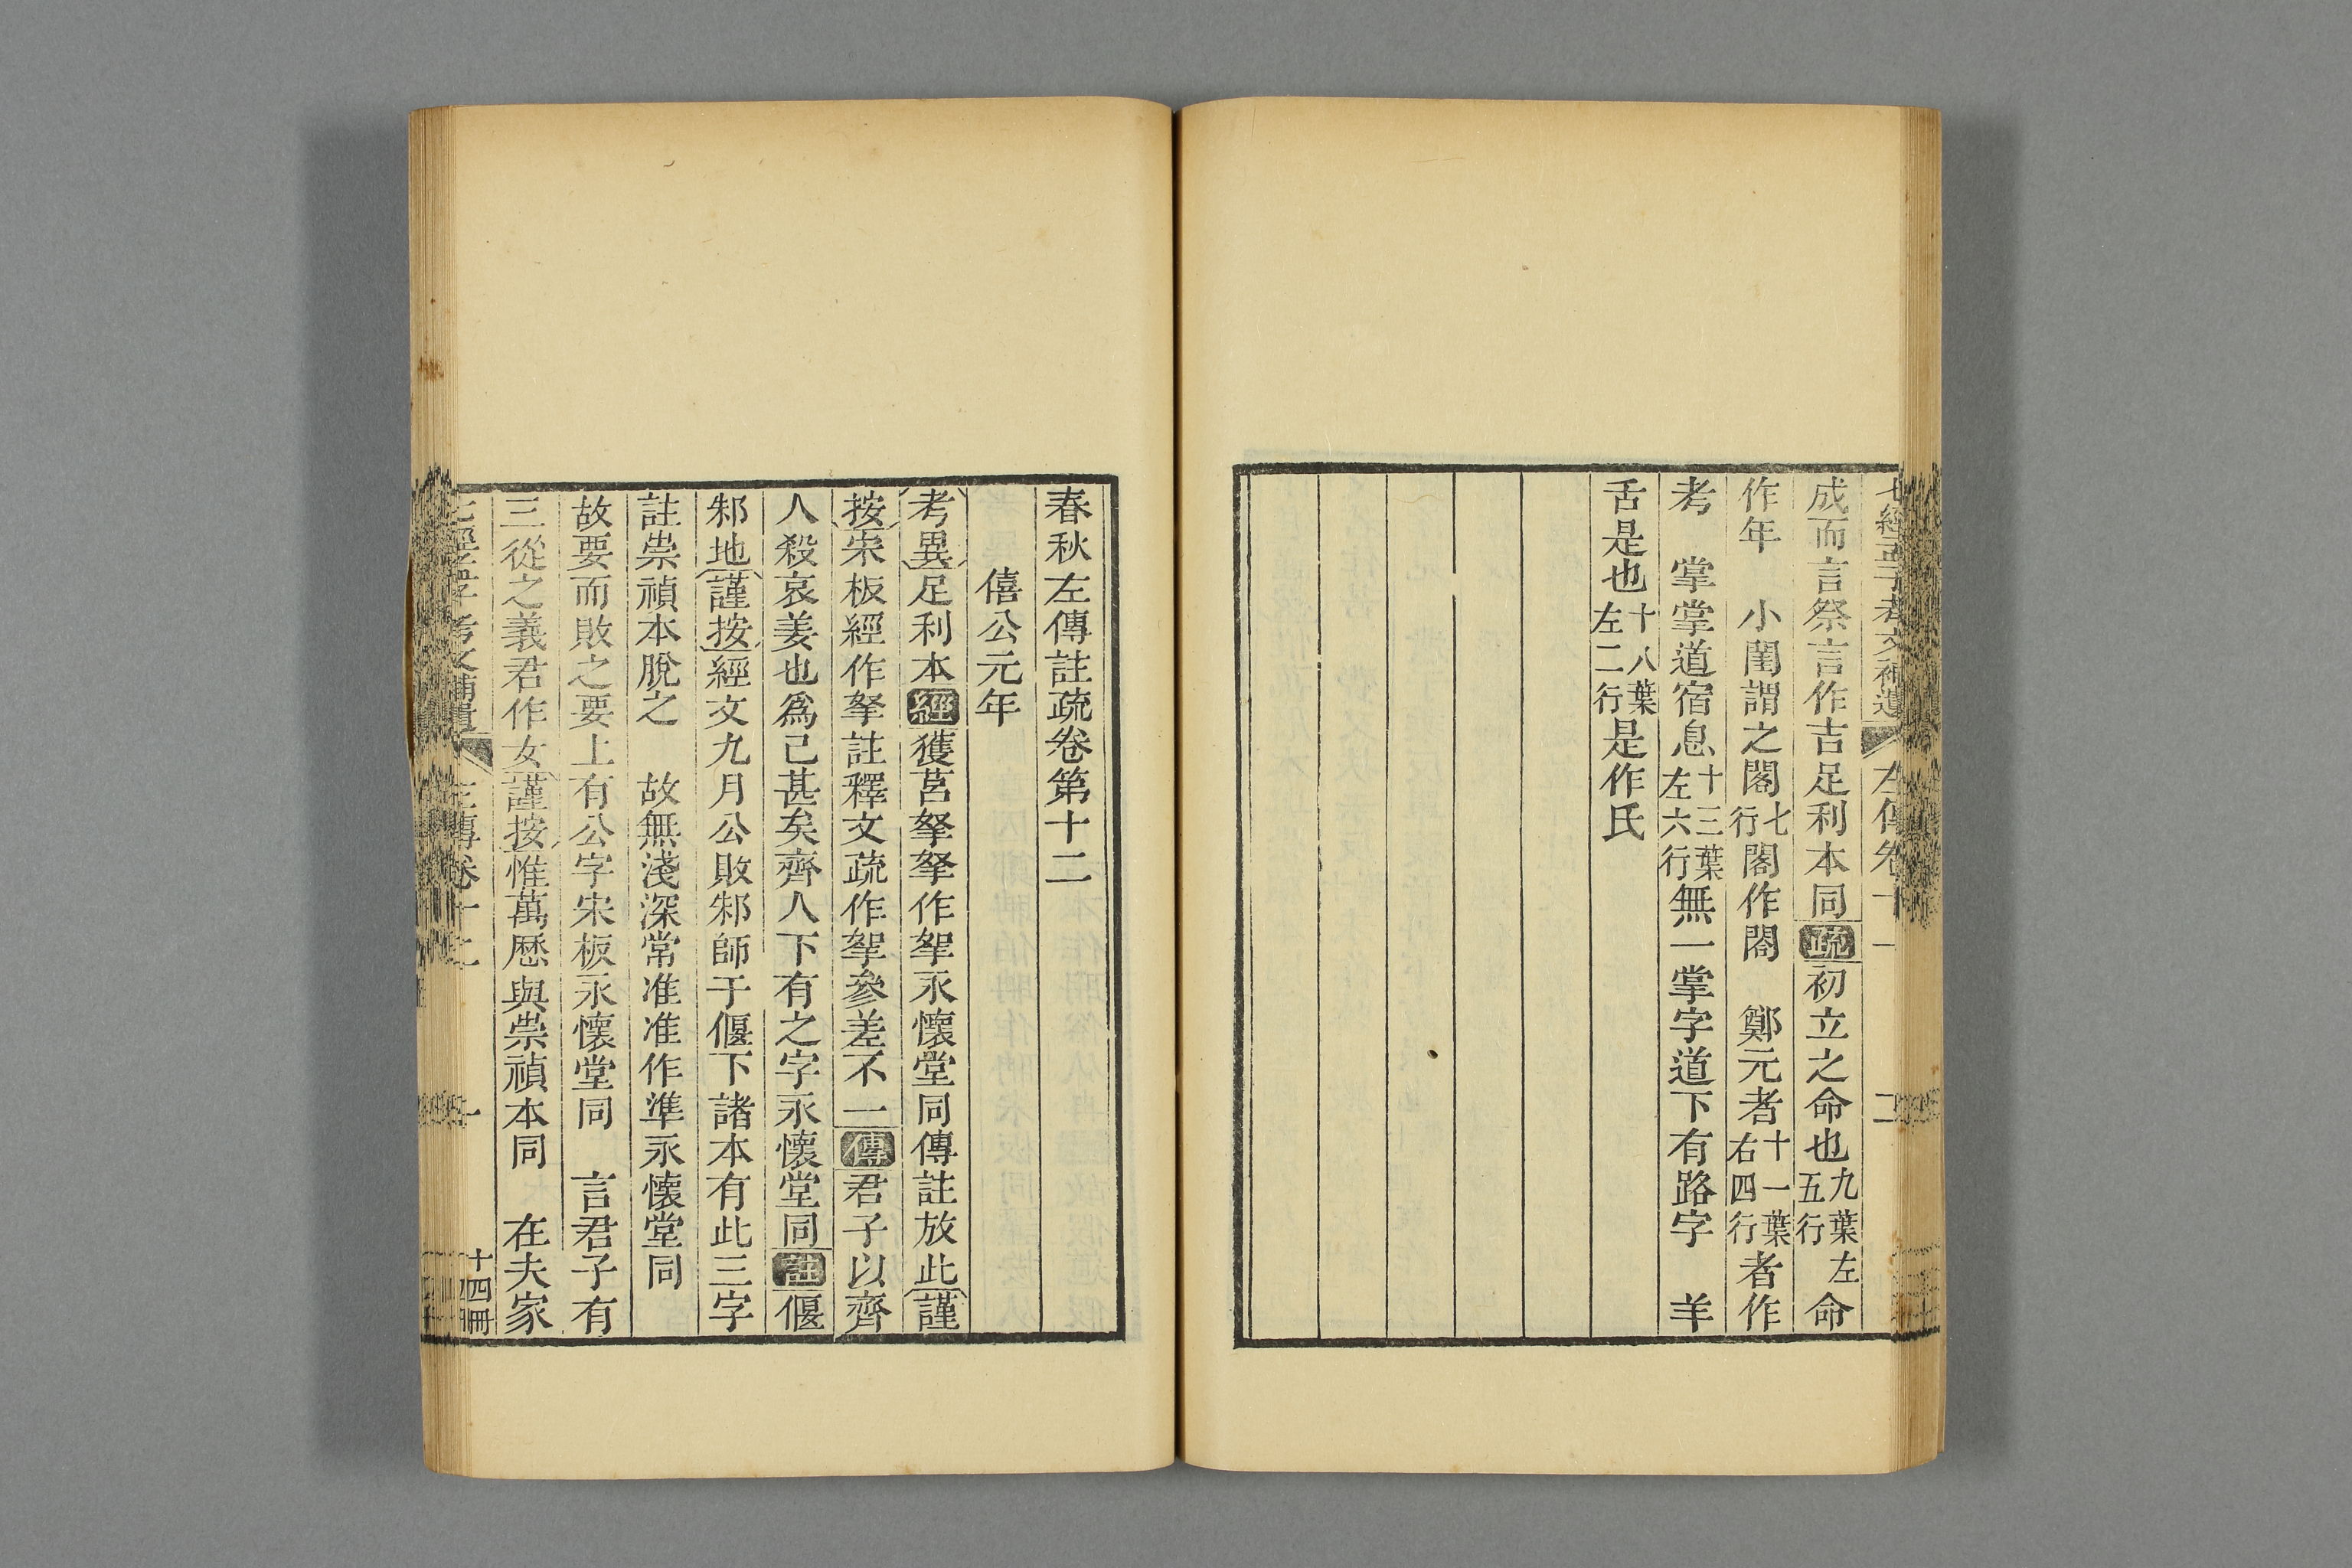 七經孟子考文補遺 左傳卷十一 二
成而言祭言作吉足利本同疏初立之命也九葉左五行命
作年 小閨謂之閣七行閣作閤 鄭元者十一葉右四行者作
考 掌掌道宿息十三葉左六行無一掌字道下有路字 羊
舌是也十八葉左二行是作氏
春秋左傳註疏卷第十二
僖公元年
考異足利本經獲莒拏拏作挐永懷堂同傳註放此謹
按宋板經作拏註釋文疏作挐參差不一傳君子以齊
人殺哀姜也爲己甚矣齊人下有之字永懷堂同註偃
邾地謹按經文九月公敗邾師于偃下諸本有此三字
註崇禎本脫之 故無淺深常准准作準永懷堂同
故要而敗之要上有公字宋板永懷堂同 言君子有
三從之義君作女謹按惟萬曆與崇禎本同 在夫家
考文補遺 傳卷十二 一 十四冊